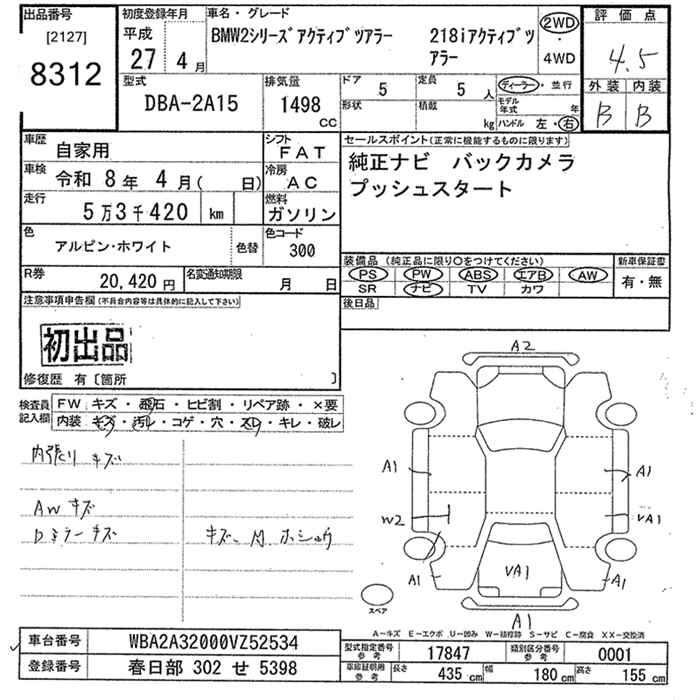 出品番号
[2127]
8312
初度登録年月
平成
27 4 月
車名・グレード
BMW2シリーズ アクティブツアラー
218iアクティブツアラー
2WD
・
4WD
評価点
4.5
外装 内装
B B
型式
DBA-2A15
排気量
1498
CC
ドア
5
形状
定員
5 人
積載
kg
ディーラー・並行
モデル年式 年
ハンドル 左・右
車歴
自家用
シフト
FAT
車検
令和 8年 4月( 日)
冷房
AC
走行
5万3千420 km
燃料
ガソリン
色
アルピン・ホワイト
色替
色コード
300
R券
20,420 円
名変通知期限
月 日
セールスポイント(正常に機能するものに限ります)
純正ナビ バックカメラ
プッシュスタート
装備品 (純正品に限り○をつけてください)
PS PW ABS エアB AW
SR ナビ TV カワ
新車保証書
有・無
後日品
注意事項申告欄(不具合内容等は具体的に記入して下さい)
初出品
修復歴 有〔箇所 〕
検査員記入欄
FW キズ・飛石・ヒビ割・リペア跡・×要
内装 キズ・汚レ・コゲ・穴・スレ・キレ・破レ
内張り キズ
AW キズ
Dミラー キズ
キズ
A2
A1
A1
W2
VA1
A1
VA1
A1
A1
スペア
A−キズ E−エクボ U−凹み W−補修跡 S−サビ C−腐食 XX−交換済
車台番号 WBA2A32000VZ52534
登録番号 春日部 302 せ 5398
型式指定番号 参考 17847
類別区分番号 参考 0001
車庫証明用 参考 長さ 435 cm 幅 180 cm 高さ 155 cm